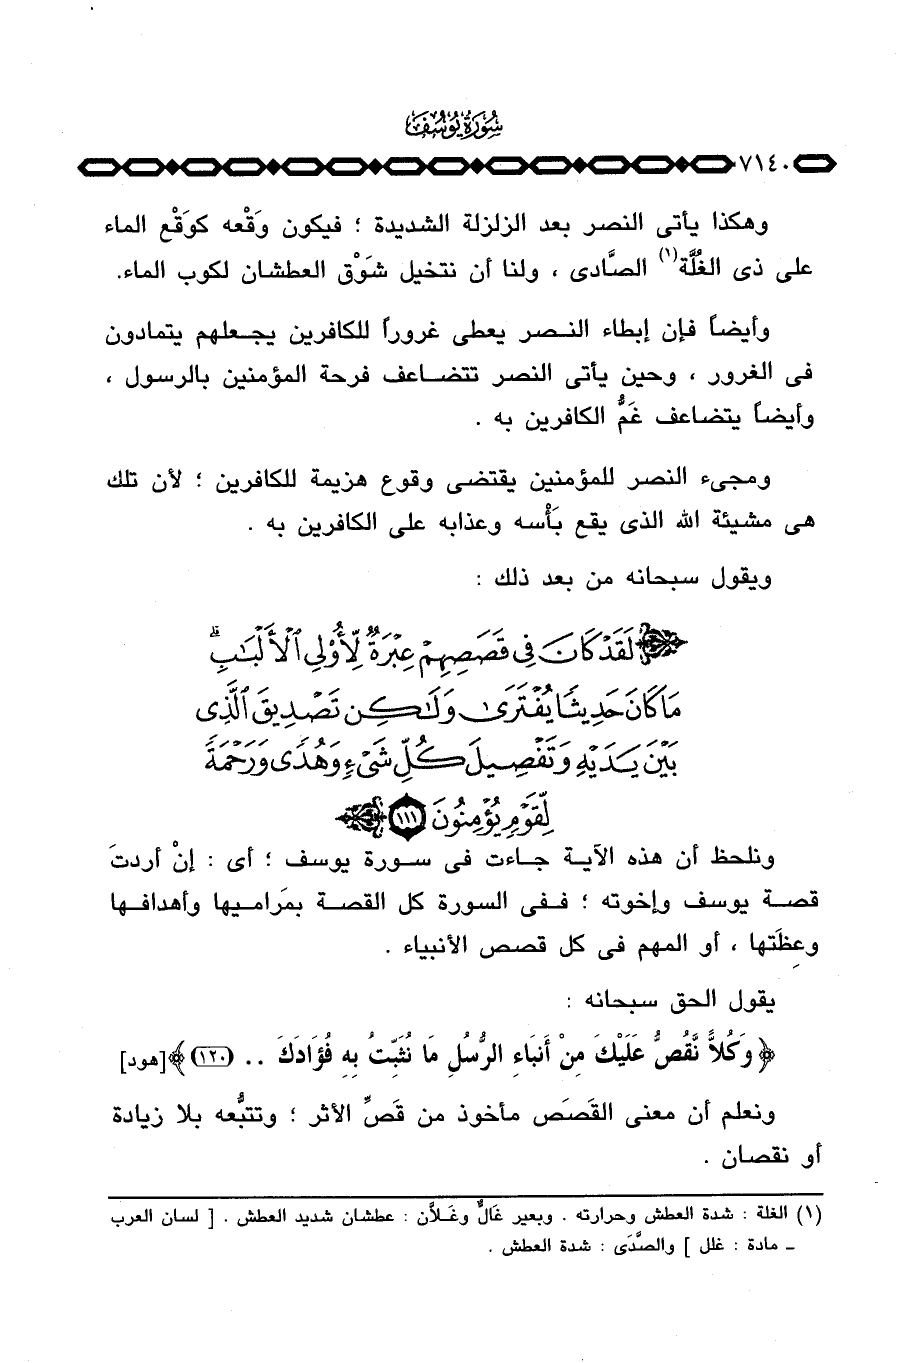 سُورَةُ يُوسُفَ
٧١٤٠
وهكذا يأتى النصر بعد الزلزلة الشديدة ؛ فيكون وَقْعه كوَقْع الماء
على ذى الغُلَّة(١) الصَّادى ، ولنا أن نتخيل شَوْق العطشان لكوب الماء.
وأيضاً فإن إبطاء النصر يعطى غروراً للكافرين يجعلهم يتمادون
فى الغرور ، وحين يأتى النصر تتضاعف فرحة المؤمنين بالرسول ،
وأيضاً يتضاعف غَمُّ الكافرين به .
ومجىء النصر للمؤمنين يقتضى وقوع هزيمة للكافرين ؛ لأن تلك
هى مشيئة الله الذى يقع بَأْسه وعذابه على الكافرين به .
ويقول سبحانه من بعد ذلك :
لَقَدْ كَانَ فِى قَصَصِهِمْ عِبْرَةٌ لِّأُوْلِى ٱلْأَلْبَٰبِ ۗ
مَا كَانَ حَدِيثًا يُفْتَرَىٰ وَلَٰكِن تَصْدِيقَ ٱلَّذِى
بَيْنَ يَدَيْهِ وَتَفْصِيلَ كُلِّ شَىْءٍ وَهُدًى وَرَحْمَةً
لِّقَوْمٍ يُؤْمِنُونَ ١١١
ونلحظ أن هذه الآية جاءت فى سورة يوسف ؛ أى : إنْ أردتَ
قصة يوسف وإخوته ؛ ففى السورة كل القصة بمَراميها وأهدافها
وعظَتها ، أو المهم فى كل قصص الأنبياء .
يقول الحق سبحانه :
﴿ وَكُلاًّ نَّقُصُّ عَلَيْكَ مِنْ أَنبَاءِ الرُّسُلِ مَا نُثَبِّتُ بِهِ فُؤَادَكَ .. (١٢٠) ﴾ [هود]
ونعلم أن معنى القَصَص مأخوذ من قَصِّ الأثر ؛ وتتبُّعه بلا زيادة
أو نقصان .
(١) الغلة : شدة العطش وحرارته . وبعير غَالٌّ وغَلاَّن : عطشان شديد العطش . [ لسان العرب
ـ مادة : غلل ] والصَّدَى : شدة العطش .